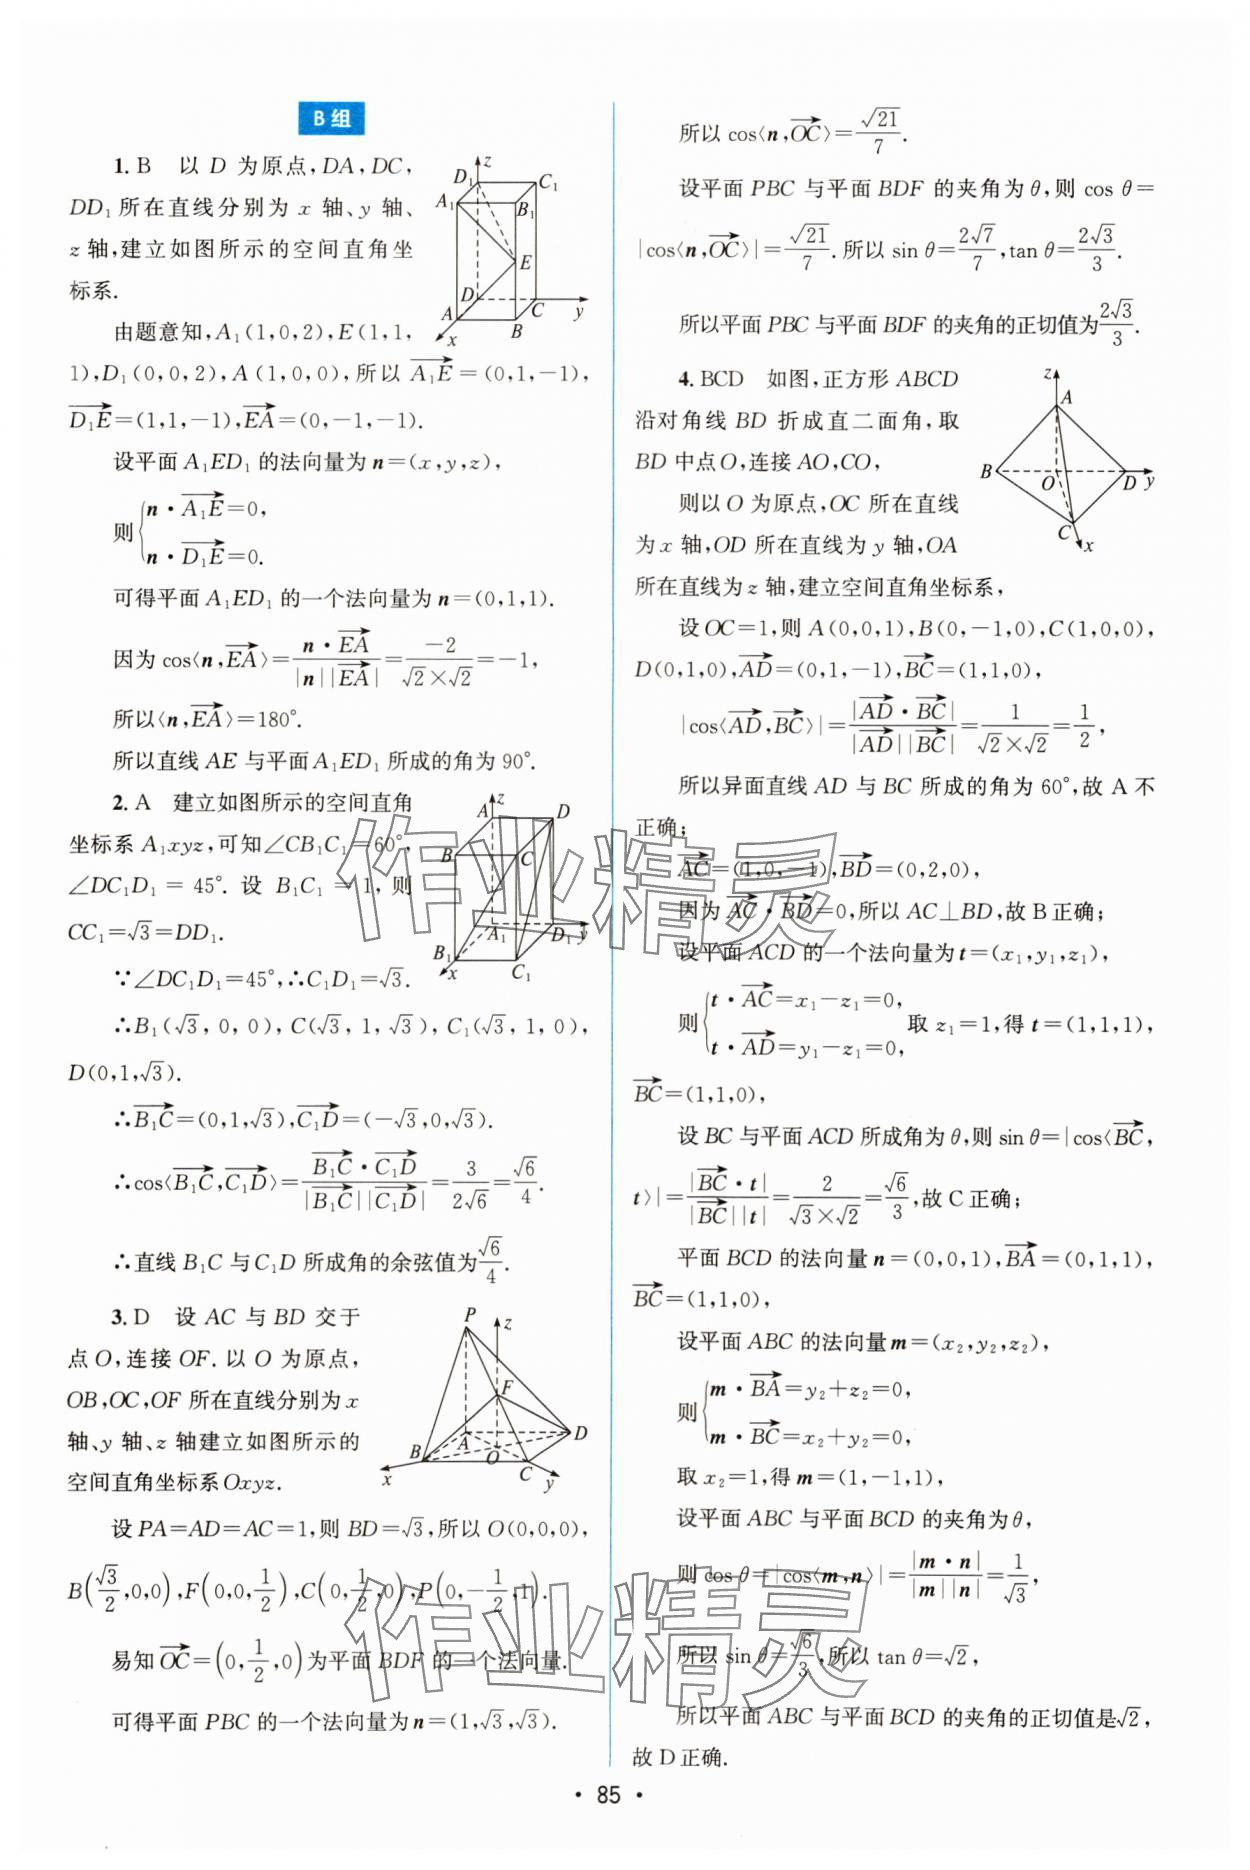 B 组
1. B 以 D 为原点,DA,DC,
DD₁所在直线分别为 x 轴、y 轴、
z 轴,建立如图所示的空间直角坐
标系.
由题意知,A₁(1,0,2),E(1,1,
1),D₁(0,0,2),A(1,0,0),所以 $\overrightarrow{A_1E}$=(0,1,−1),
$\overrightarrow{D_1E}$=(1,1,−1),$\overrightarrow{EA}$=(0,−1,−1).
设平面 A₁ED₁ 的法向量为 n=(x,y,z),
则{n·$\overrightarrow{A_1E}$=0,
n·$\overrightarrow{D_1E}$=0.
可得平面 A₁ED₁ 的一个法向量为 n=(0,1,1).
因为 cos⟨n,$\overrightarrow{EA}$⟩=$\frac{n·\overrightarrow{EA}}{|n||\overrightarrow{EA}|}$=$\frac{-2}{\sqrt{2}×\sqrt{2}}$=−1,
所以⟨n,$\overrightarrow{EA}$⟩=180°.
所以直线 AE 与平面 A₁ED₁ 所成的角为 90°.
2. A 建立如图所示的空间直角
坐标系 A₁xyz,可知∠CB₁C₁=60°,
∠DC₁D₁=45°. 设 B₁C₁=1,则
CC₁=√3=DD₁.
∵∠DC₁D₁=45°,∴C₁D₁=√3.
∴B₁(√3,0,0),C(√3,1,√3),C₁(√3,1,0),
D(0,1,√3).
∴$\overrightarrow{B_1C}$=(0,1,√3),$\overrightarrow{C_1D}$=(−√3,0,√3).
∴cos⟨$\overrightarrow{B_1C}$,$\overrightarrow{C_1D}$⟩=$\frac{\overrightarrow{B_1C}·\overrightarrow{C_1D}}{|\overrightarrow{B_1C}||\overrightarrow{C_1D}|}$=$\frac{3}{2\sqrt{6}}$=$\frac{\sqrt{6}}{4}$.
∴直线 B₁C 与 C₁D 所成角的余弦值为$\frac{\sqrt{6}}{4}$.
3. D 设 AC 与 BD 交于
点 O,连接 OF. 以 O 为原点,
OB,OC,OF 所在直线分别为 x
轴、y 轴、z 轴建立如图所示的
空间直角坐标系 Oxyz.
设 PA=AD=AC=1,则 BD=√3,所以 O(0,0,0),
B($\frac{\sqrt{3}}{2}$,0,0),F(0,0,$\frac{1}{2}$),C(0,$\frac{1}{2}$,0),P(0,−$\frac{1}{2}$,1).
易知 $\overrightarrow{OC}$=(0,$\frac{1}{2}$,0)为平面 BDF 的一个法向量.
可得平面 PBC 的一个法向量为 n=(1,√3,√3).
所以 cos⟨n,$\overrightarrow{OC}$⟩=$\frac{\sqrt{21}}{7}$.
设平面 PBC 与平面 BDF 的夹角为 θ,则 cos θ=
|cos⟨n,$\overrightarrow{OC}$⟩|=$\frac{\sqrt{21}}{7}$.所以 sin θ=$\frac{2\sqrt{7}}{7}$,tan θ=$\frac{2\sqrt{3}}{3}$.
所以平面 PBC 与平面 BDF 的夹角的正切值为$\frac{2\sqrt{3}}{3}$.
4. BCD 如图,正方形 ABCD
沿对角线 BD 折成直二面角,取
BD 中点 O,连接 AO,CO,
则以 O 为原点,OC 所在直线
为 x 轴,OD 所在直线为 y 轴,OA
所在直线为 z 轴,建立空间直角坐标系,
设 OC=1,则 A(0,0,1),B(0,−1,0),C(1,0,0),
D(0,1,0),$\overrightarrow{AD}$=(0,1,−1),$\overrightarrow{BC}$=(1,1,0),
|cos⟨$\overrightarrow{AD}$,$\overrightarrow{BC}$⟩|=$\frac{|\overrightarrow{AD}·\overrightarrow{BC}|}{|\overrightarrow{AD}||\overrightarrow{BC}|}$=$\frac{1}{\sqrt{2}×\sqrt{2}}$=$\frac{1}{2}$,
所以异面直线 AD 与 BC 所成的角为 60°,故 A 不
正确;
$\overrightarrow{AC}$=(1,0,−1),$\overrightarrow{BD}$=(0,2,0),
因为 $\overrightarrow{AC}$·$\overrightarrow{BD}$=0,所以 AC⊥BD,故 B 正确;
设平面 ACD 的一个法向量为 t=(x₁,y₁,z₁),
则{t·$\overrightarrow{AC}$=x₁−z₁=0,
t·$\overrightarrow{AD}$=y₁−z₁=0, 取 z₁=1,得 t=(1,1,1),
$\overrightarrow{BC}$=(1,1,0),
设 BC 与平面 ACD 所成角为 θ,则 sin θ=|cos⟨$\overrightarrow{BC}$,
t⟩|=$\frac{|\overrightarrow{BC}·t|}{|\overrightarrow{BC}||t|}$=$\frac{2}{\sqrt{3}×\sqrt{2}}$=$\frac{\sqrt{6}}{3}$,故 C 正确;
平面 BCD 的法向量 n=(0,0,1),$\overrightarrow{BA}$=(0,1,1),
$\overrightarrow{BC}$=(1,1,0),
设平面 ABC 的法向量 m=(x₂,y₂,z₂),
则{m·$\overrightarrow{BA}$=y₂+z₂=0,
m·$\overrightarrow{BC}$=x₂+y₂=0,
取 x₂=1,得 m=(1,−1,1),
设平面 ABC 与平面 BCD 的夹角为 θ,
则 cos θ=|cos⟨m,n⟩|=$\frac{|m·n|}{|m||n|}$=$\frac{1}{\sqrt{3}}$,
所以 sin θ=$\frac{\sqrt{6}}{3}$,所以 tan θ=√2,
所以平面 ABC 与平面 BCD 的夹角的正切值是√2,
故 D 正确.
· 85 ·
作业精灵
作业精灵